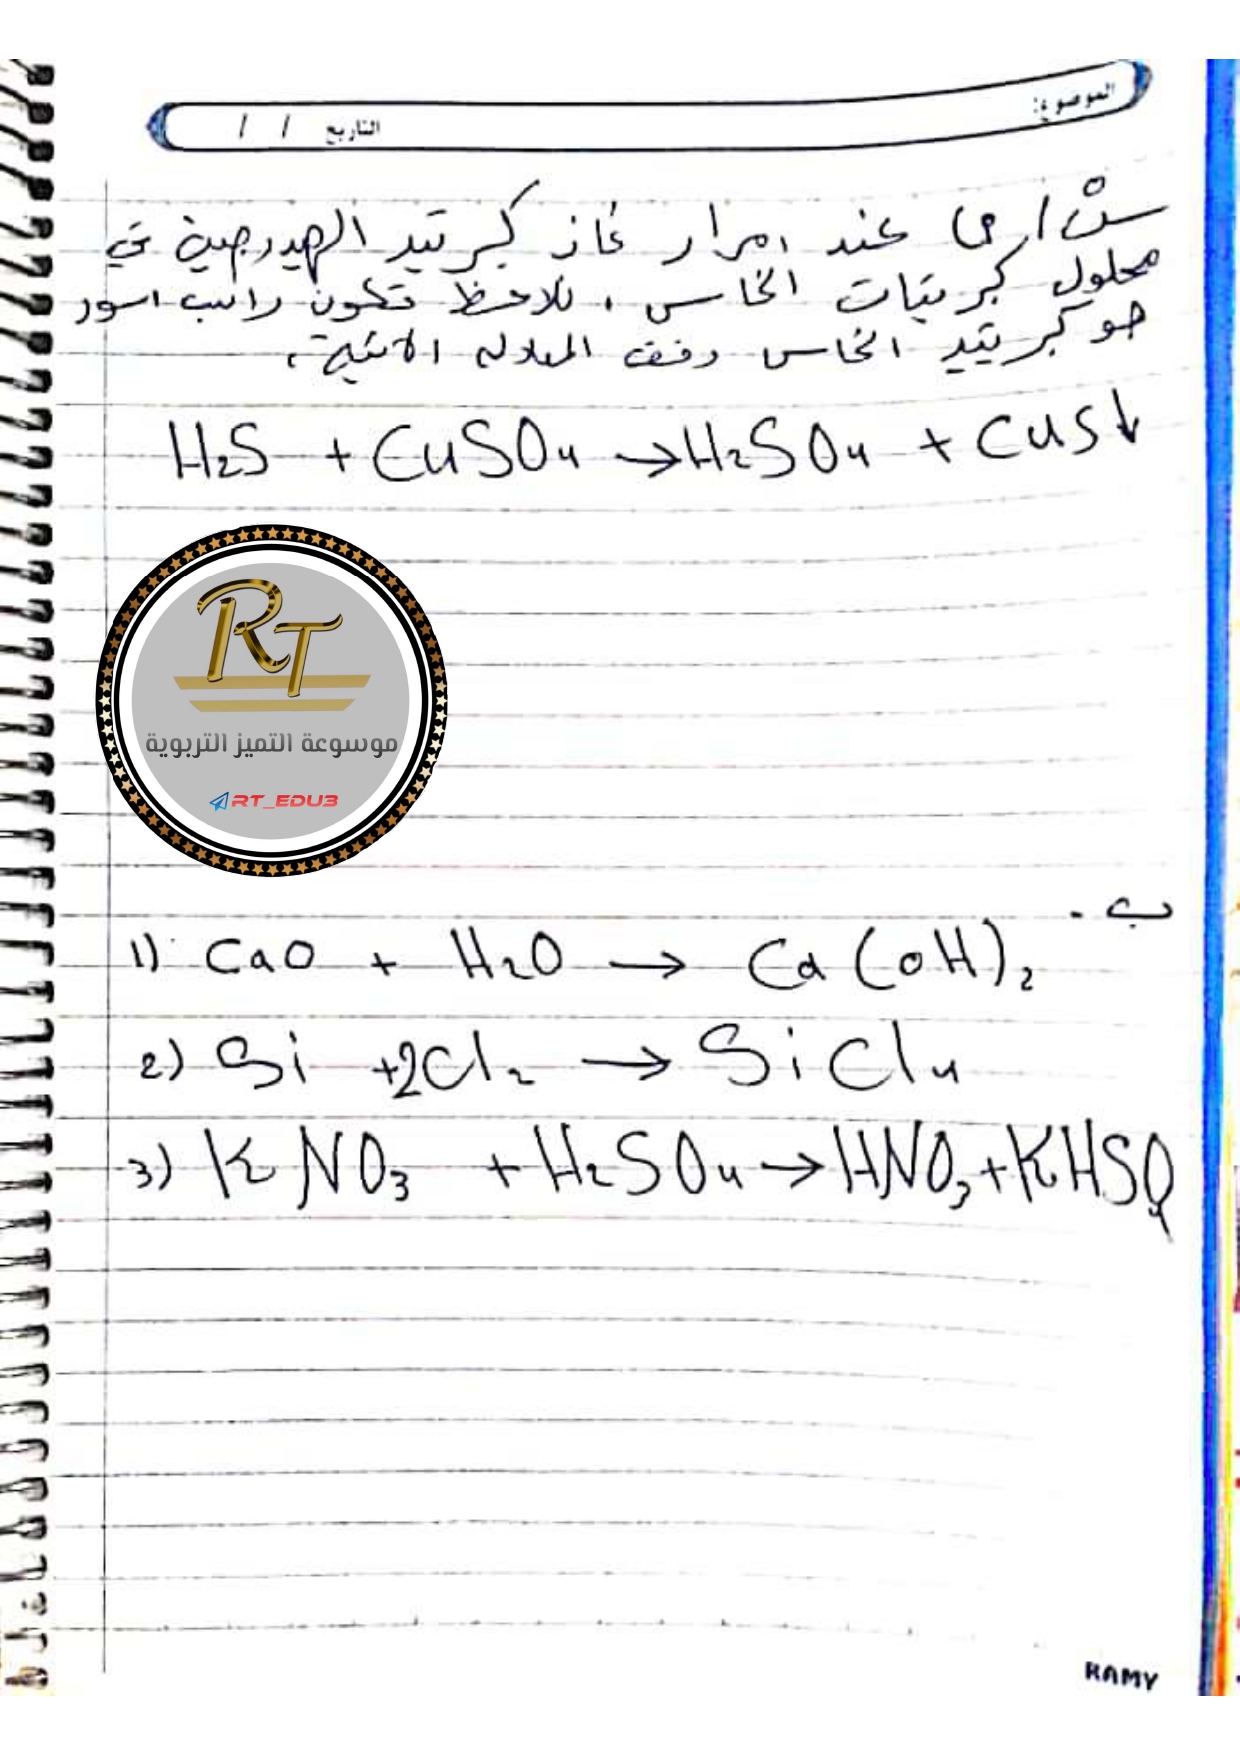 الموضوع:
التاريخ / /
س٥/ P/ عند امرار غاز كبرتيد الهيدروجين في
محلول كبريتات النحاس ، نلاحظ تكون راسب اسود
هو كبريتيد النحاس وفق المعادلة الاتية،
H₂S + CuSO₄ → H₂SO₄ + CuS↓
RT
موسوعة التميز التربوية
RT_EDU3
ب -
1) CaO + H₂O → Ca(OH)₂
2) Si + 2Cl₂ → SiCl₄
3) KNO₃ + H₂SO₄ → HNO₃ + KHSO₄
RAMY